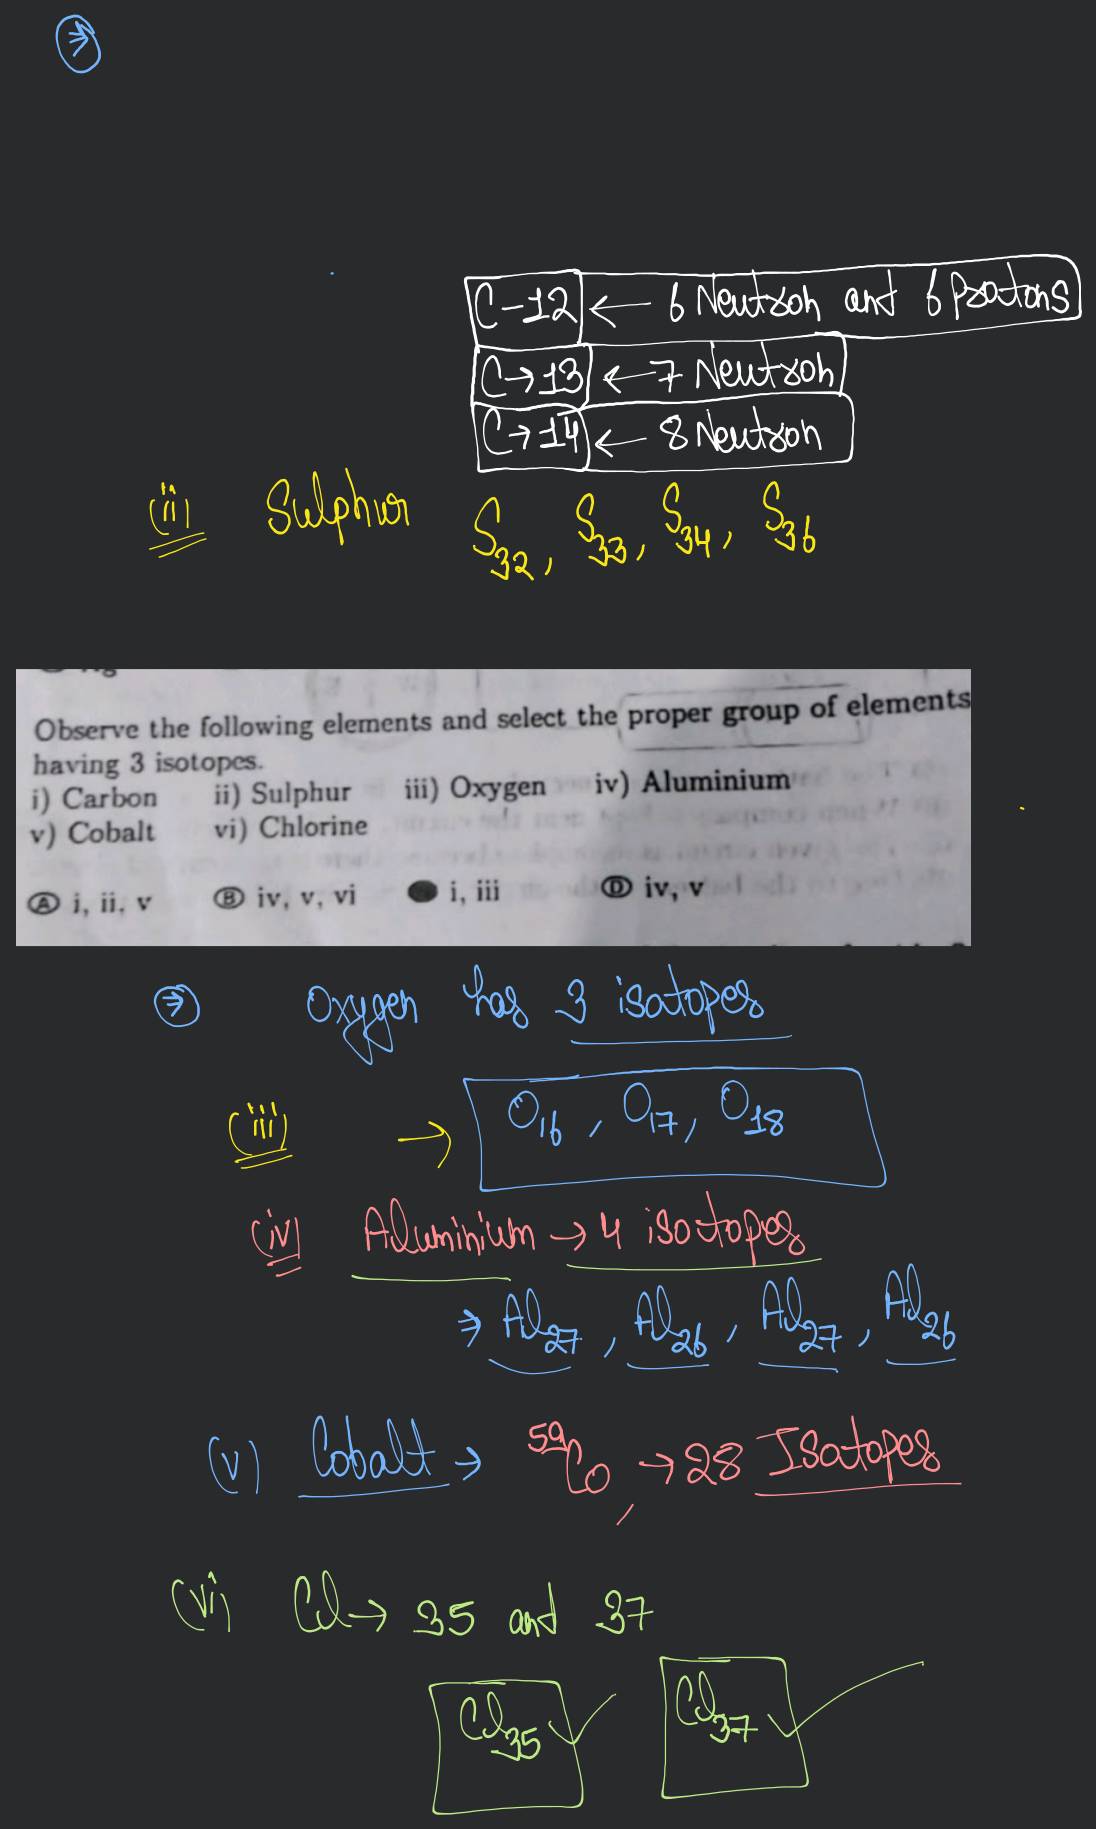 C-12 ← 6 Neutron and 6 Protons
C→13 ← 7 Neutron
C→14 ← 8 Neutron
(ii) Sulphur S32, S33, S34, S36
Observe the following elements and select the proper group of elements
having 3 isotopes.
i) Carbon ii) Sulphur iii) Oxygen iv) Aluminium
v) Cobalt vi) Chlorine
Ⓐ i, ii, v Ⓑ iv, v, vi i, iii Ⓓ iv, v
Oxygen has 3 isatopes
(iii) → O16, O17, O18
(iv) Aluminium → 4 isotopes
⇒ Al27, Al26, Al27, Al26
(v) Cobalt → 59Co, → 28 Isatopes
(vi) Cl → 35 and 37
Cl35 Cl37